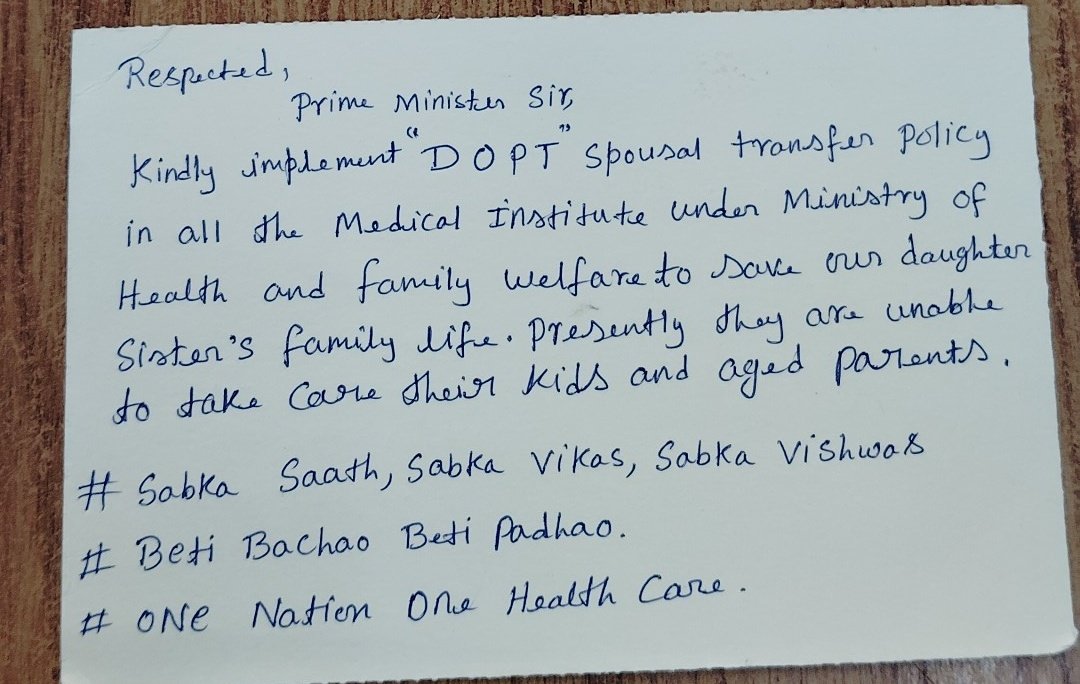 Respected,
Prime Minister Sir,
Kindly implement "DOPT" Spousal transfer Policy
in all the Medical Institute under Ministry of
Health and family welfare to save our daughter
Sister's family life. Presently they are unable
to take Care their Kids and aged Parents.
# Sabka Saath, Sabka Vikas, Sabka Vishwas
# Beti Bachao Beti Padhao.
# ONE Nation One Health Care.